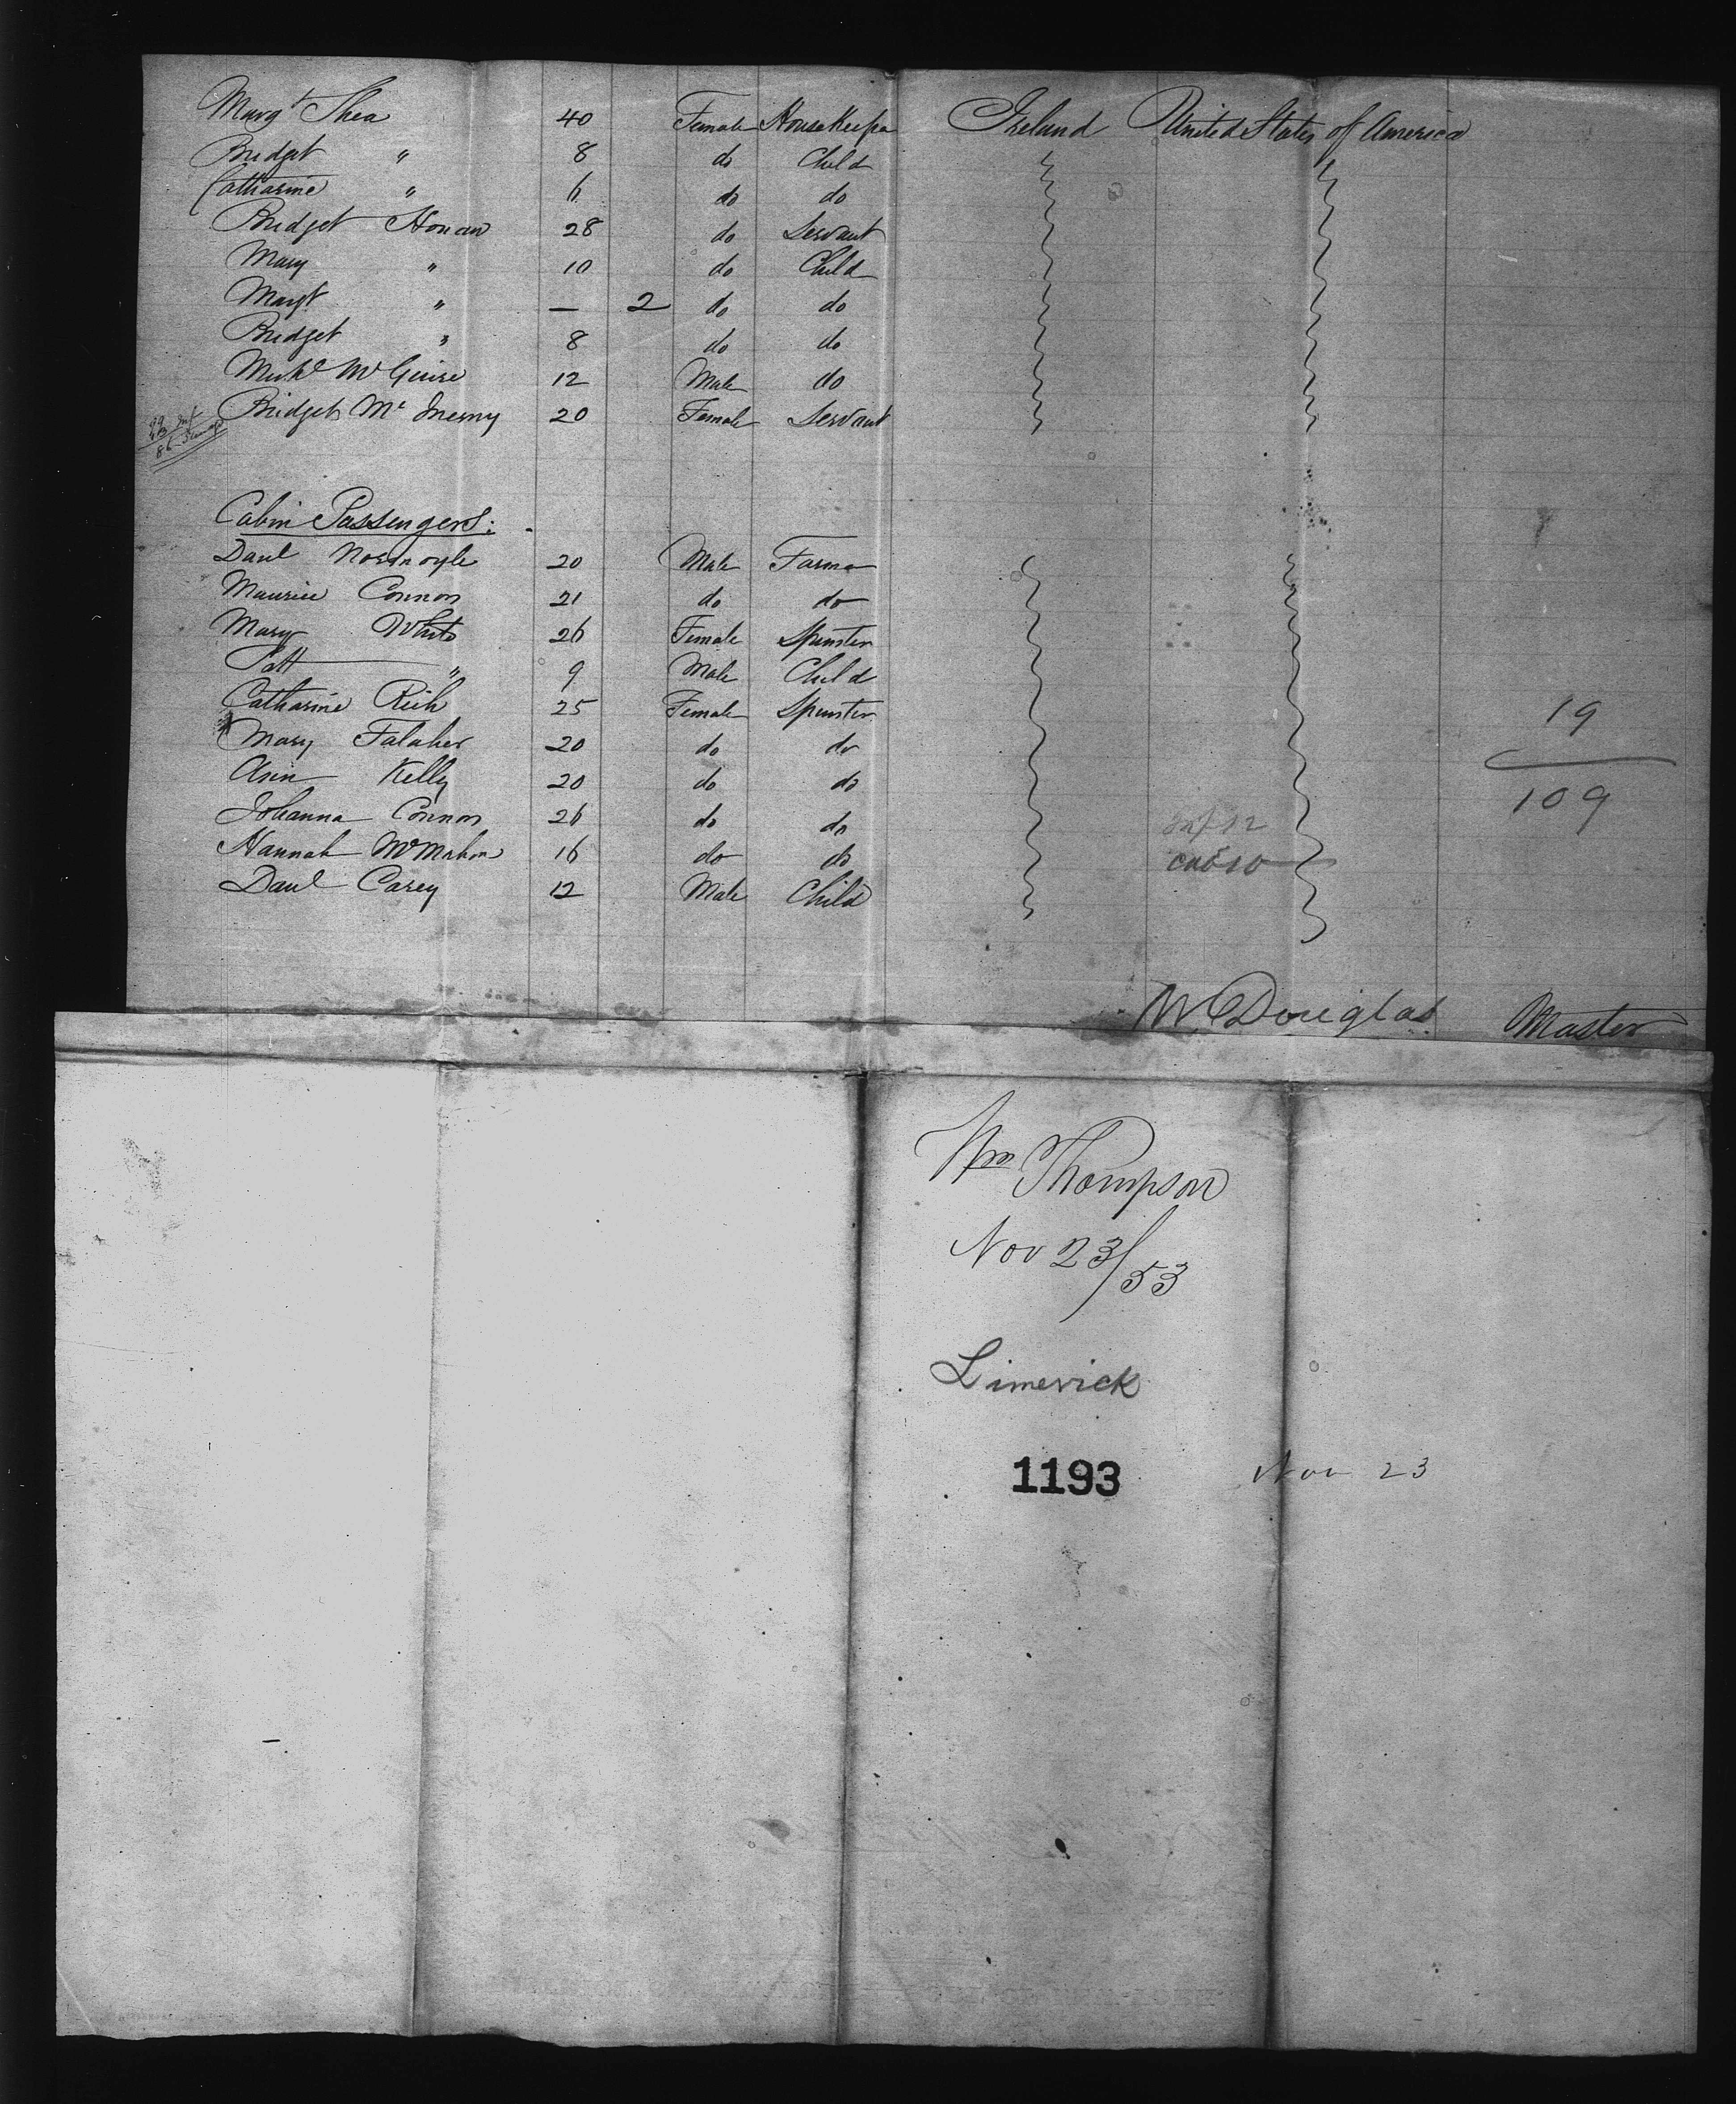 Margt Shea 40 Female HouseKeeper Ireland United States of America
Bridget " 8 do Child
Catharine " 6 do do
Bridget Honan 28 do Servant
Mary " 10 do Child
Margt " — 2 do do
Bridget " 8 do do
Michl McGuire 12 Male do
Bridget Mc Inerny 20 Female Servant
Cabin Passengers:
Danl 20 Male Farmer
Maurice Connor 21 do do
Mary White 26 Female Spinster
Patt " 9 Male Child
Catharine Rich 25 Female Spinster
19
Mary Falaher 20 do do
Ann Kelly 20 do do
109
Johanna Connor 26 do do
Hannah McMahon 16 do do
Danl Carey 12 Male Child
W Douglas Master
Wm Thompson
Nov 23/53
Limerick
1193 Nov 23